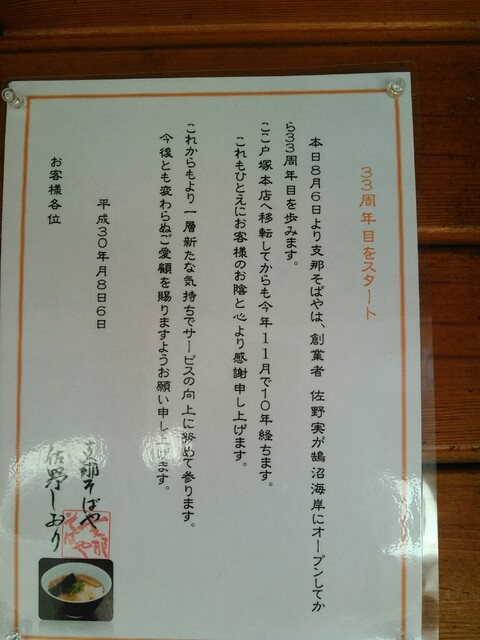 33周年目をスタート
本日8月6日より支那そばやは、創業者 佐野実が鵠沼海岸にオープンしてか
ら33周年目を歩みます。
ここ戸塚本店へ移転してからも今年11月で10年経ちます。
これもひとえにお客様のお陰と心より感謝申し上げます。
これからもより一層新たな気持ちでサービスの向上に努めて参ります。
今後とも変わらぬご愛顧を賜りますようお願い申し上げます。
平成30年月8日6日
お客様各位
支那そばや
佐野しおり
支那
そばや